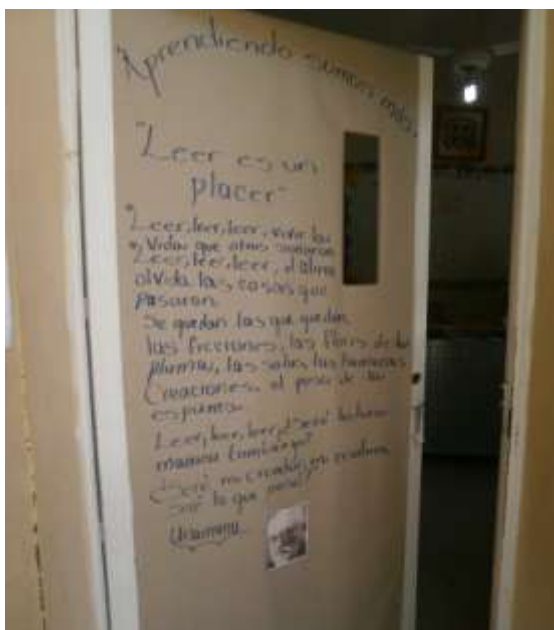 "Aprendiendo somos más"
"Leer es un
placer"
"Leer, leer, leer, vivir la
vida que otros soñaron
Leer, leer, leer, el alma
olvida las cosas que
pasaron
Se quedan las que quedan,
las ficciones, las flores de la
pluma, las solas, las humanas
Creaciones, el poso de la
espuma
Leer, leer, leer, ¿Seré lectura
mañana también yo?
¿Seré mi creador, mi criatura
seré lo que pasó?
Unamuno